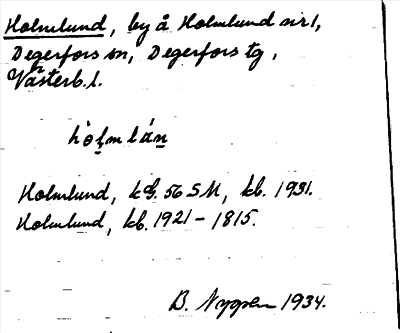 Holmlund, by å Holmlund nr 1,
Degerfors sn, Degerfors tg,
Västerb. l.
hòḷmlán
Holmlund, kb. 56 SM, kb. 1931.
Holmlund, kb. 1921 – 1815.
B. Nygren 1934.